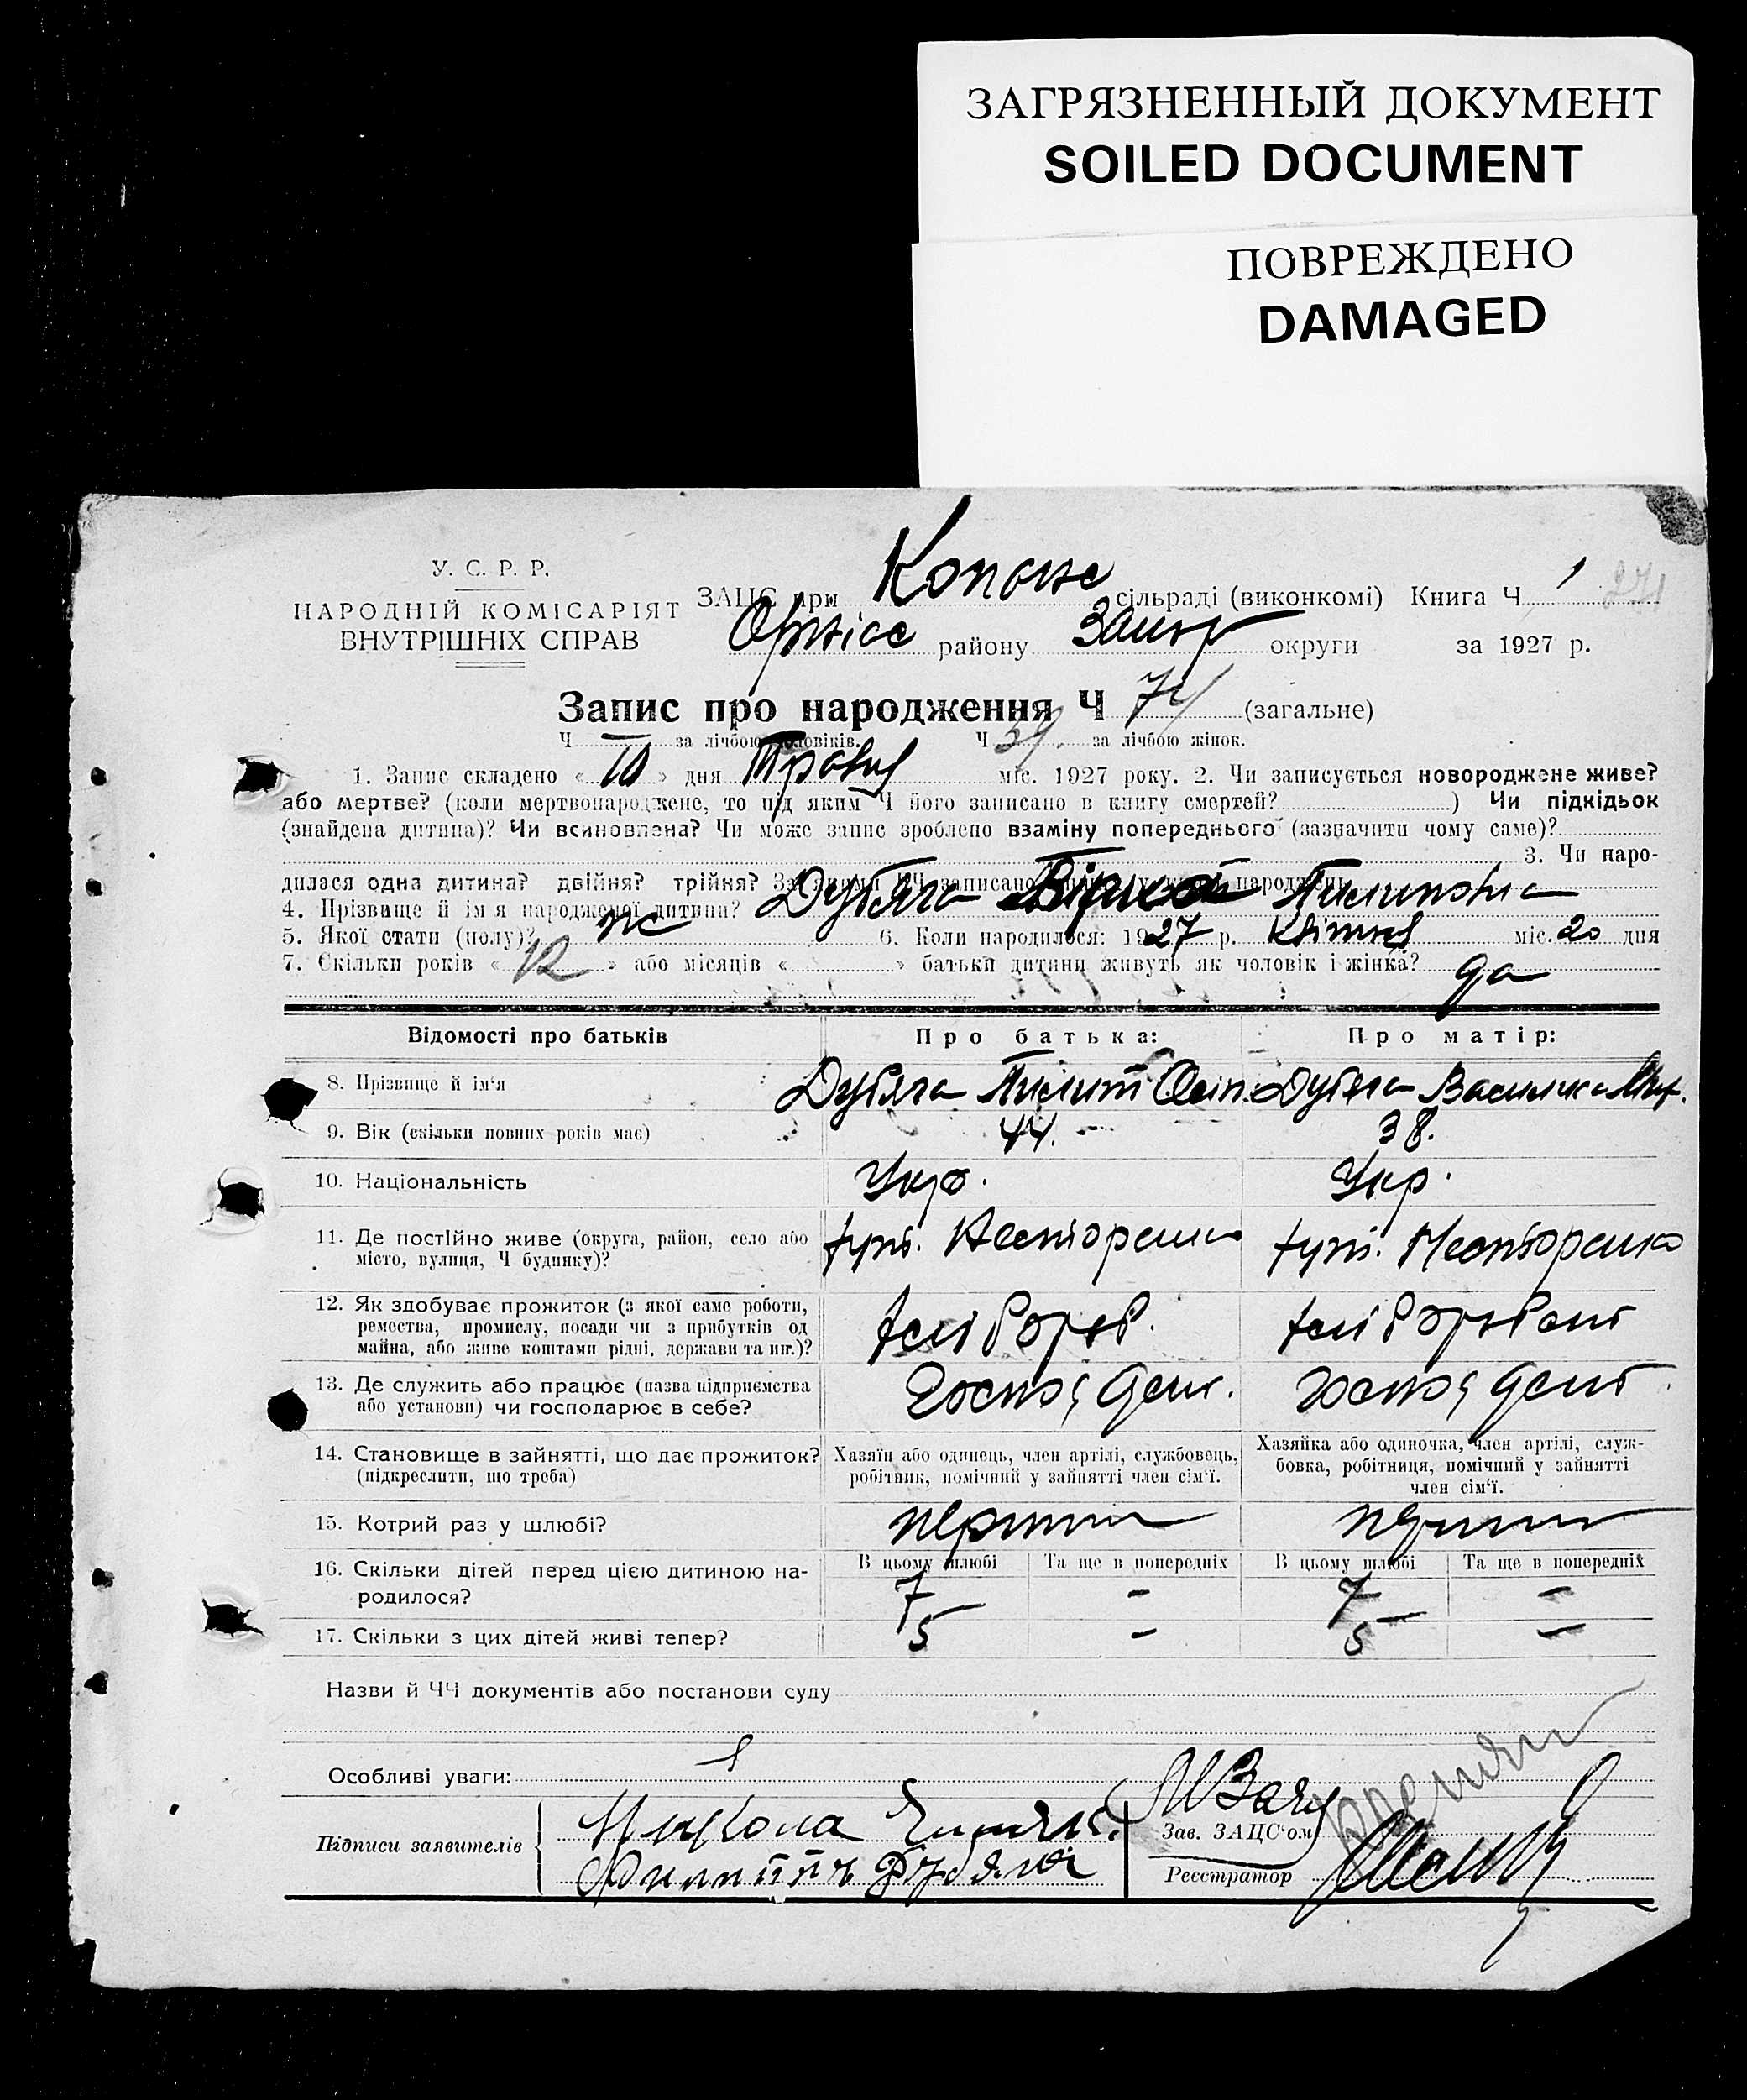 ЗАГРЯЗНЕННЫЙ ДОКУМЕНТ
SOILED DOCUMENT
ПОВРЕЖДЕНО
DAMAGED
У. С. Р. Р.
НАРОДНІЙ КОМІСАРІЯТ
ВНУТРІШНІХ СПРАВ
ЗАЦС при сільраді (виконкомі) Книга Ч 1 271
району округи за 1927 р.
Запис про народження Ч 74 (загальне)
Ч за лічбою чоловіків. Ч 39 за лічбою жінок.
1. Запис складено « 10 » дня Травня міс. 1927 року. 2. Чи записується новороджене живе?
або мертве? (коли мертвонароджене, то під яким Ч його записано в книгу смертей? ) Чи підкідьок
(знайдена дитина)? Чи всиновлена? Чи може запис зроблено взаміну попереднього (зазначити чому саме)?
3. Чи наро-
дилася одна дитина? двійня? трійня? За якими ЧЧ записано народжені
4. Прізвище й ім'я народженої дитини? Дубяга
5. Якої стати (полу)? жс 6. Коли народилося: 1927 р. Квітня міс. 20 дня
7. Скільки років « 12 » або місяців « » батьки дитини живуть як чоловік і жінка? да
Відомості про батьків Про батька: Про матір:
8. Прізвище й ім'я Дубяга Пилип Осіп. Дубяга
9. Вік (скільки повних років має) 44. 38.
10. Національність Укр. Укр.
11. Де постійно живе (округа, район, село або
місто, вулиця, Ч будинку)?
хут. Нестеренко хут. Нестеренко
12. Як здобуває прожиток (з якої саме роботи,
ремества, промислу, посади чи з прибутків од
майна, або живе коштами рідні, держави та ин.)?
13. Де служить або працює (назва підприємства
або установи) чи господарює в себе?
14. Становище в зайнятті, що дає прожиток?
(підкреслити, що треба)
Хазяїн або одинець, член артілі, службовець,
робітник, помічний у зайнятті член сім'ї.
Хазяйка або одиночка, член артілі, служ-
бовка, робітниця, помічний у зайнятті
член сім'ї.
15. Котрий раз у шлюбі?
16. Скільки дітей перед цією дитиною на-
родилося?
В цьому шлюбі Та ще в попередніх В цьому шлюбі Та ще в попередніх
7 – 7 –
17. Скільки з цих дітей живі тепер? 5 – 5 –
Назви й ЧЧ документів або постанови суду
Особливі уваги:
Підписи заявителів
Микола
Филиппъ Дубяга
Зав. ЗАЦС'ом
Реєстратор